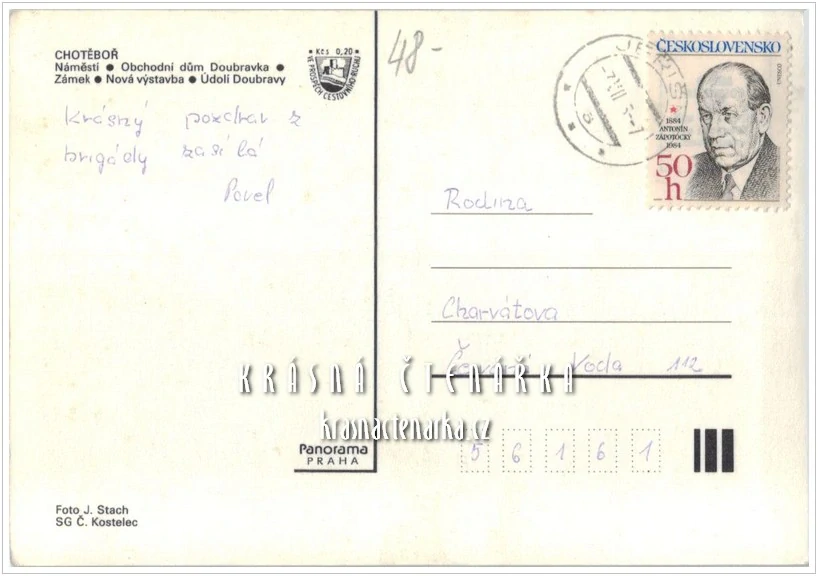 CHOTĚBOŘ
Náměstí ● Obchodní dům Doubravka ●
Zámek ● Nová výstavba ● Údolí Doubravy
Kčs 0,20
VE PROSPĚCH CESTOVNÍHO RUCHU
48-
ČESKOSLOVENSKO
1884
ANTONÍN
ZÁPOTOCKÝ
1984
50
h
Krásný pozdrav z
brigády zasílá
Pavel
Rodina
Charvátova
Voda 112
KRÁSNÁ ČTENÁŘKA
krasnactenarka.cz
56161
Panorama
PRAHA
Foto J. Stach
SG Č. Kostelec